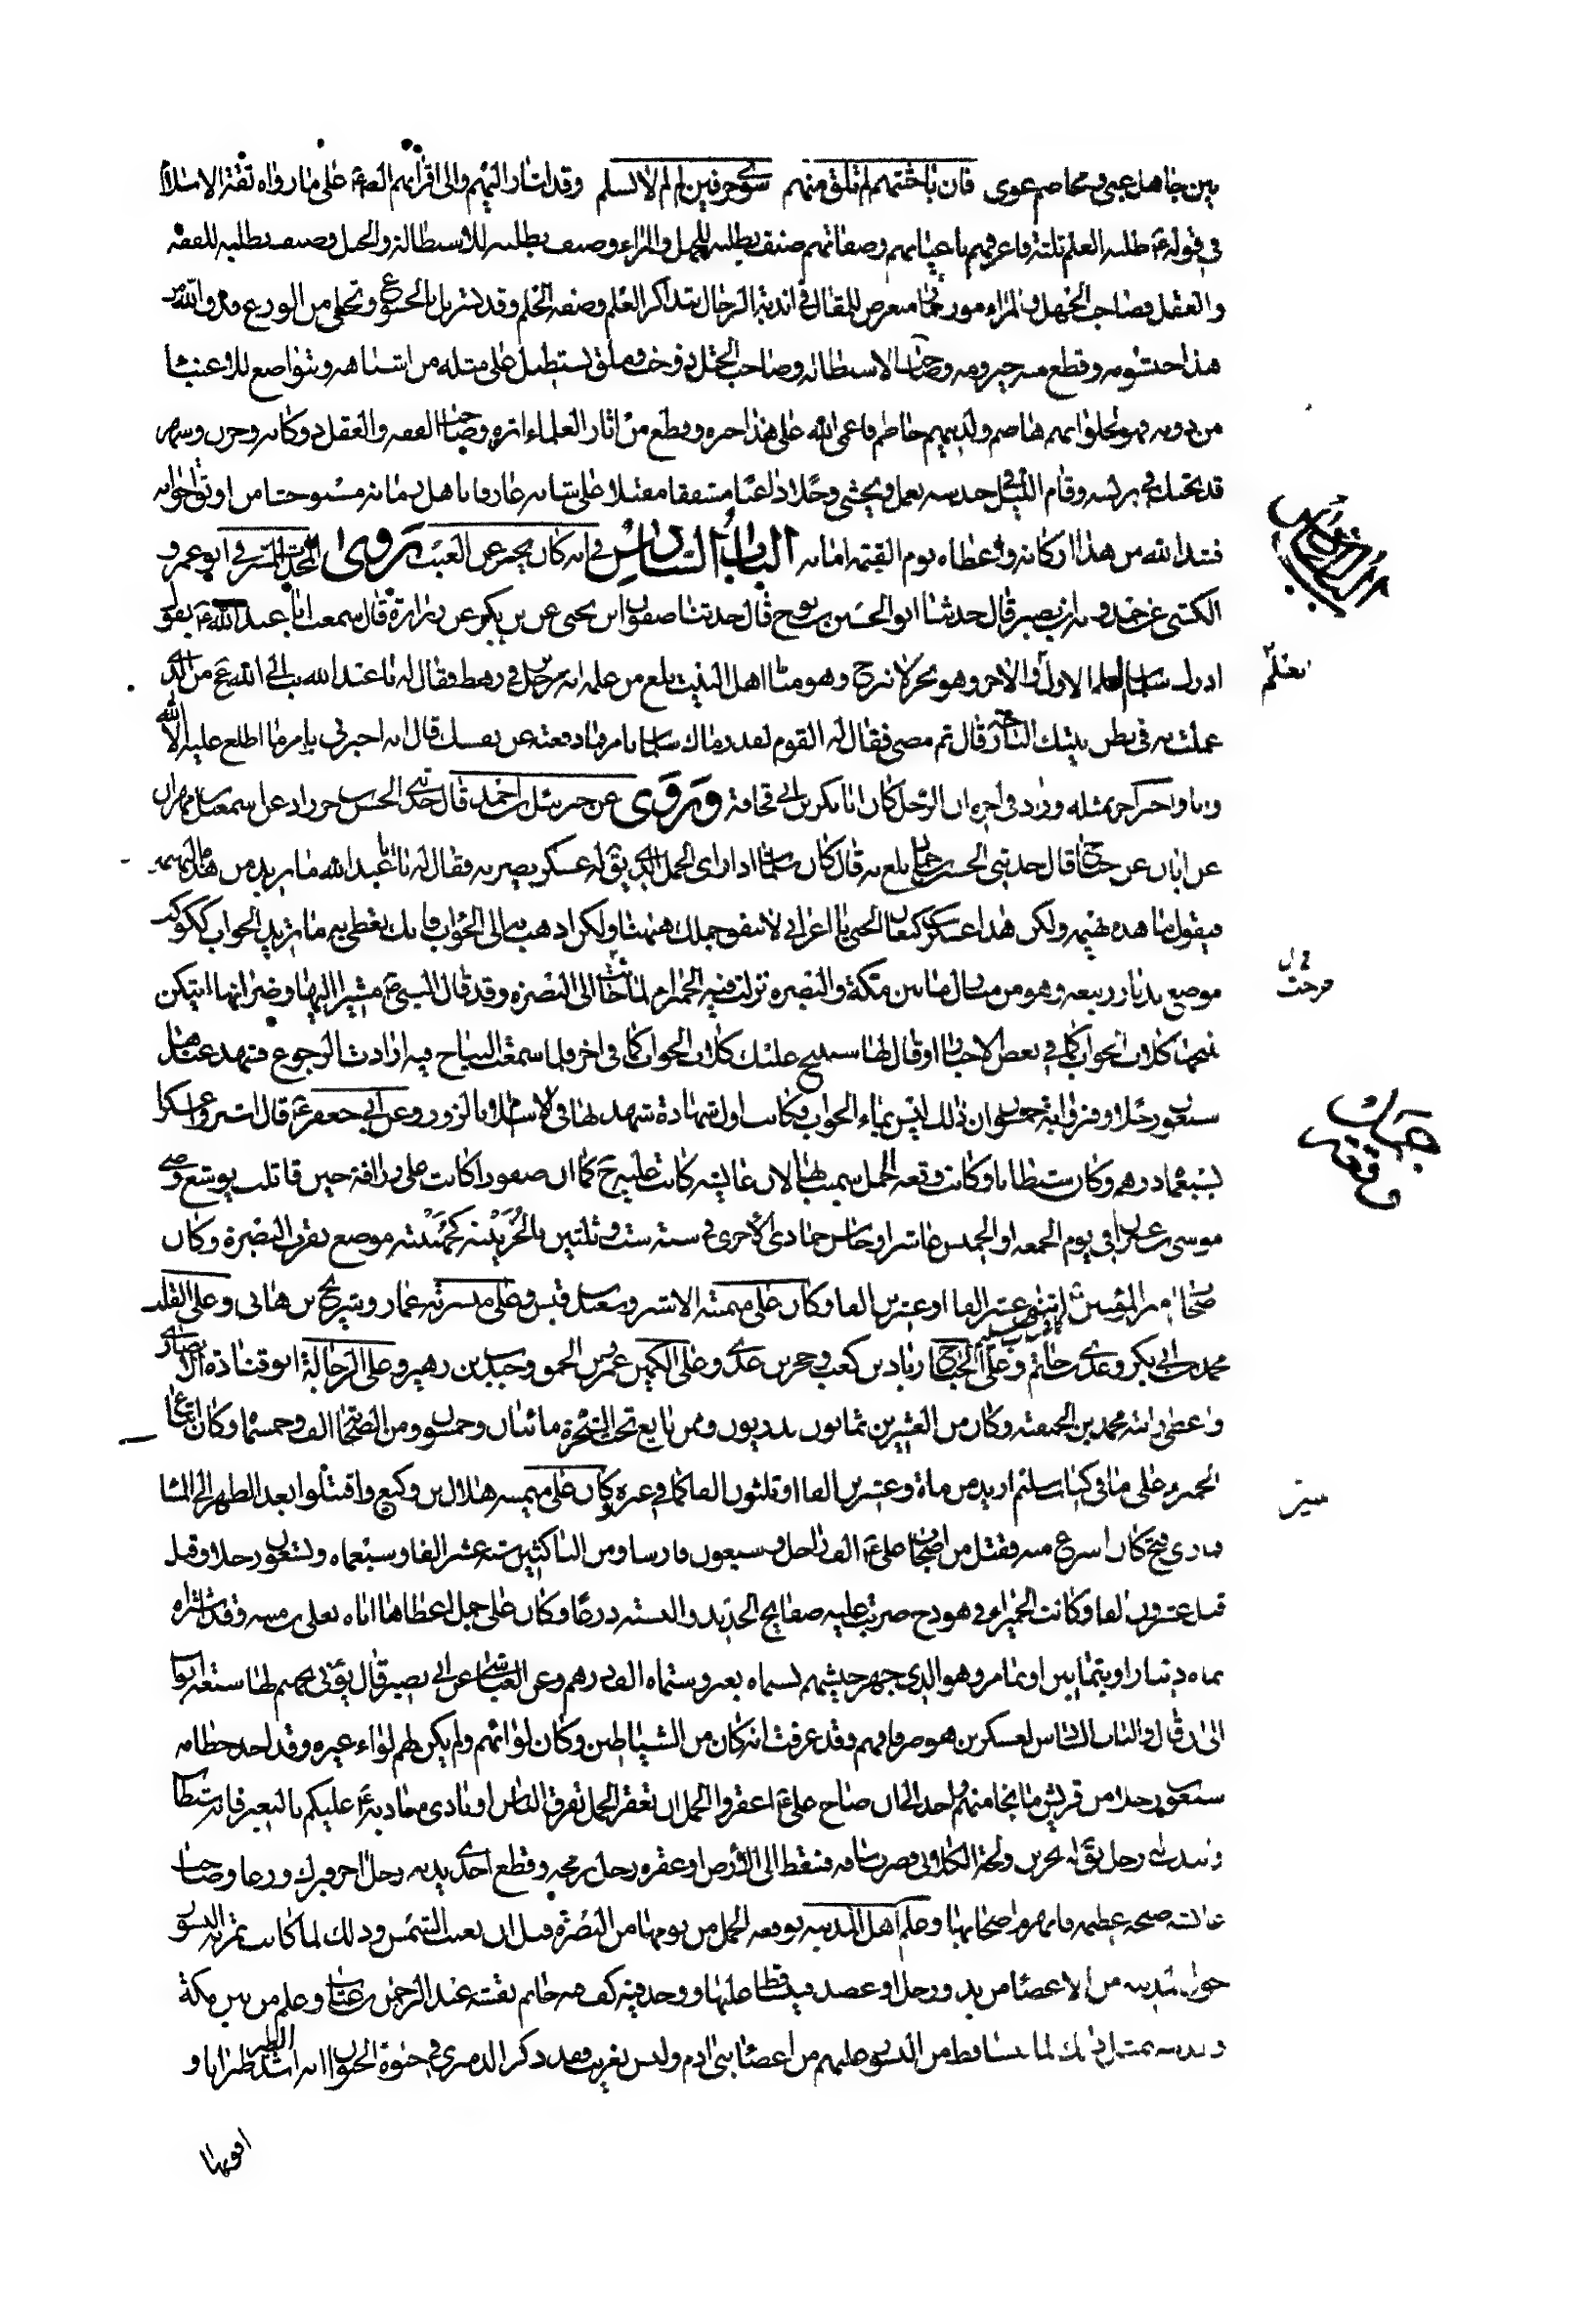 بين جاهل عيي ومخاصم غوي فان باحثتهم لم تلق منهم سوى حرفين لم لم لا نسلم وقد اشار اليهم والى اقرانهم الص ع على ما رواه ثقة الاسلام
في قوله ع طلبه العلم ثلثة فاعرفهم باعيانهم وصفاتهم صنف يطلبه للجهل والمراء وصنف يطلبه للاستطالة والختل وصنف يطلبه للفقه
والعقل فصاحب الجهل والمراء موذ ممار متعرض للمقال في اندية الرجال بتذاكر العلم وصفة الحلم وقد تسربل بالخشوع وتخلى من الورع فدق الله من
هذا خيشومه وقطع منه حيزومه وصاحب الاستطالة وصاحب الختل ذو خب وملق يستطيل على مثله من اشباهه ويتواضع للاغنياء
من دونه فهو لحلوائهم هاضم ولدينهم حاطم فاعمى الله على هذا خبره وقطع من اثار العلماء اثره وصاحب الفقه والعقل ذو كابة وحزن وسهر
قد تحنك في برنسه وقام الليل في حندسه يعمل ويخشى وجلا داعيا مشفقا مقبلا على شانه عارفا باهل زمانه مستوحشا من اوثق اخوانه
فشد الله من هذا اركانه واعطاه يوم القيمة امانه الباب السادس في انه كان يخبر عن الغيب روى المحدث الاسترـ ابو عمرو
الكشي عن حمدويه بن نصير قال حدثنا ابو الحسين بن نوح قال حدثنا صفوان بن يحيى عن بن بكير عن زرارة قال سمعت ابا عبد الله ع يقول
ادرك سلمان العلم الاول والاخر وهو بحر لا ينزح وهو منا اهل البيت بلغ من علمه انه مر برجل في رهط فقال له يا عبد الله تب الى الله عز من الذي
عملت به في بطن بيتك البارحة قال ثم مضى فقال له القوم لقد رماك سلمان بامر فما دفعته عن نفسك قال انه اخبرني بامر ما اطلع عليه الا الله
وانا وفي خبر اخر مثله وزاد في اخره ان الرجل كان ابا بكر بن ابي قحافة وروى عن جبرئيل بن احمد قال حدثني الحسن بن خرزاد عن اسمعيل بن مهران
عن ابان عن جناح قال حدثني الحسن بن حماد بلغ به قال كان سلمان اذا راى الجمل الذي يق له عسكر يضربه فقال له يا ابا عبد الله ما تريد من هذه البهيمة
فيقول ما هذه بهيمة ولكن هذا عسكر بن كنعان الجني يا اعرابي لا ينفق جملك ههنا ولكن اذهب به الى الحواب فانك تعطى به ما تريد الحواب ككوكب
موضع بديار ربيعة وهو من منازل ما بين مكة والبصرة نزلت فيه الحميراء لما جائت الى البصرة وقد قال النبي ص مشيرا اليها وضراتها ايتكن
تنبحها كلاب الحواب كما في بعض الاخبار او قال لها ستنبح عليك كلاب الحواب كما في اخر فلما سمعت النباح فيه ارادت الرجوع فشهد عندها
سبعون رجلا وفي رواية خمسون ان ذلك ليس بماء الحواب فكانت اول شهادة شهد لها في الاسلام بالزور وعن ابي جعفر ع قال اشتروا عسكرا
بسبعمائة درهم وكان شيطانا وكانت وقعة الجمل سميت بها لان عايشة كانت عليه ح كما ان صفورا كانت على زرافة حين قاتلت يوشع وصي
موسى بن عمران في يوم الجمعة او الخميس عاشر او خامس جمادى الاخرى في سنة ست وثلثين بالخريبة كجهينة موضع بقرب البصرة وكان
اصحاب امير المؤمنين اثنى عشر الفا او عشرين الفا وكان على ميمنته الاشتر وسعيد بن قيس وعلى ميسرته عمار وشريح بن هاني وعلى القلب
محمد بن ابي بكر وعدي بن حاتم وعلى الجناح زياد بن كعب وحجر بن عدي وعلى الكمين عمرو بن الحمق وجندب بن زهير وعلى الرجالة ابو قتادة الانصاري
واعطى رايته محمد بن الحنفية وكان من العشرين ثمانون بدريون وممن بايع تحت الشجرة مائتان وخمسون ومن الصحابة الف وخمسمائة وكان اتباع
الحميراء على ما في كتاب سليم ازيد من مائة وعشرين الفا او ثلثون الفا كما في غيره وكان على ميمنته هلال بن وكيع واقتتلوا بعد الظهر الى المساء
فما رئي فتح كان اسرع منه فقتل من اصحاب علي ع الف راجل وسبعون فارسا ومن الناكثين ستة عشر الفا وسبعمائة وتسعون رجلا وقيل
قتل عشرون الفا وكانت الحميراء في هودج ضربت عليه صفايح الحديد والبسته درعا وكان على جمل اعطاها اياه يعلى بن منبه وقد شتراه
بمائة دينار او بثمانين او ثمانمائة وهو الذي جهز جيشهم بستمائة بعير وستمائة الف درهم وعن العياشي عن ابي بصير قال يؤتى بجهنم لها سبعة ابواب
الى ان قال والباب السادس لعسكر بن هوسر فافهم وقد عرفت انه كان من الشياطين وكان لوائهم ولم يكن لهم لواء غيره وقد اخذ خطامه
سبعون رجلا من قريش ما نجا منهم احد الى ان صاح علي ع اعقروا الجمل ان تعقر الجمل تفرق الناس او نادى مناديه ع عليكم بالبعير فانه شيطان
عائشة صيحة عظيمة فانهزم اصحابها وعلم اهل المدينة بوقعة الجمل من يومها من البصرة قبل ان تغيب الشمس وذلك لما كانت تمر به النسور
حول المدينة من الاعضاء من يد ورجل وعضد فيتساقط عليها ووجد فيه كف فيه خاتم نقشه عبد الرحمن بن عتاب وعلم من بين مكة
والمدينة بمثل ذلك لما يتساقط من النسور عليهم من اعضاء بني ادم وليس بغريب فقد ذكر الدميري في حيوة الحيوان انه اشد الطير طيرانا و
اقويها
الباب السادس
تعلم
جنگ وقعه